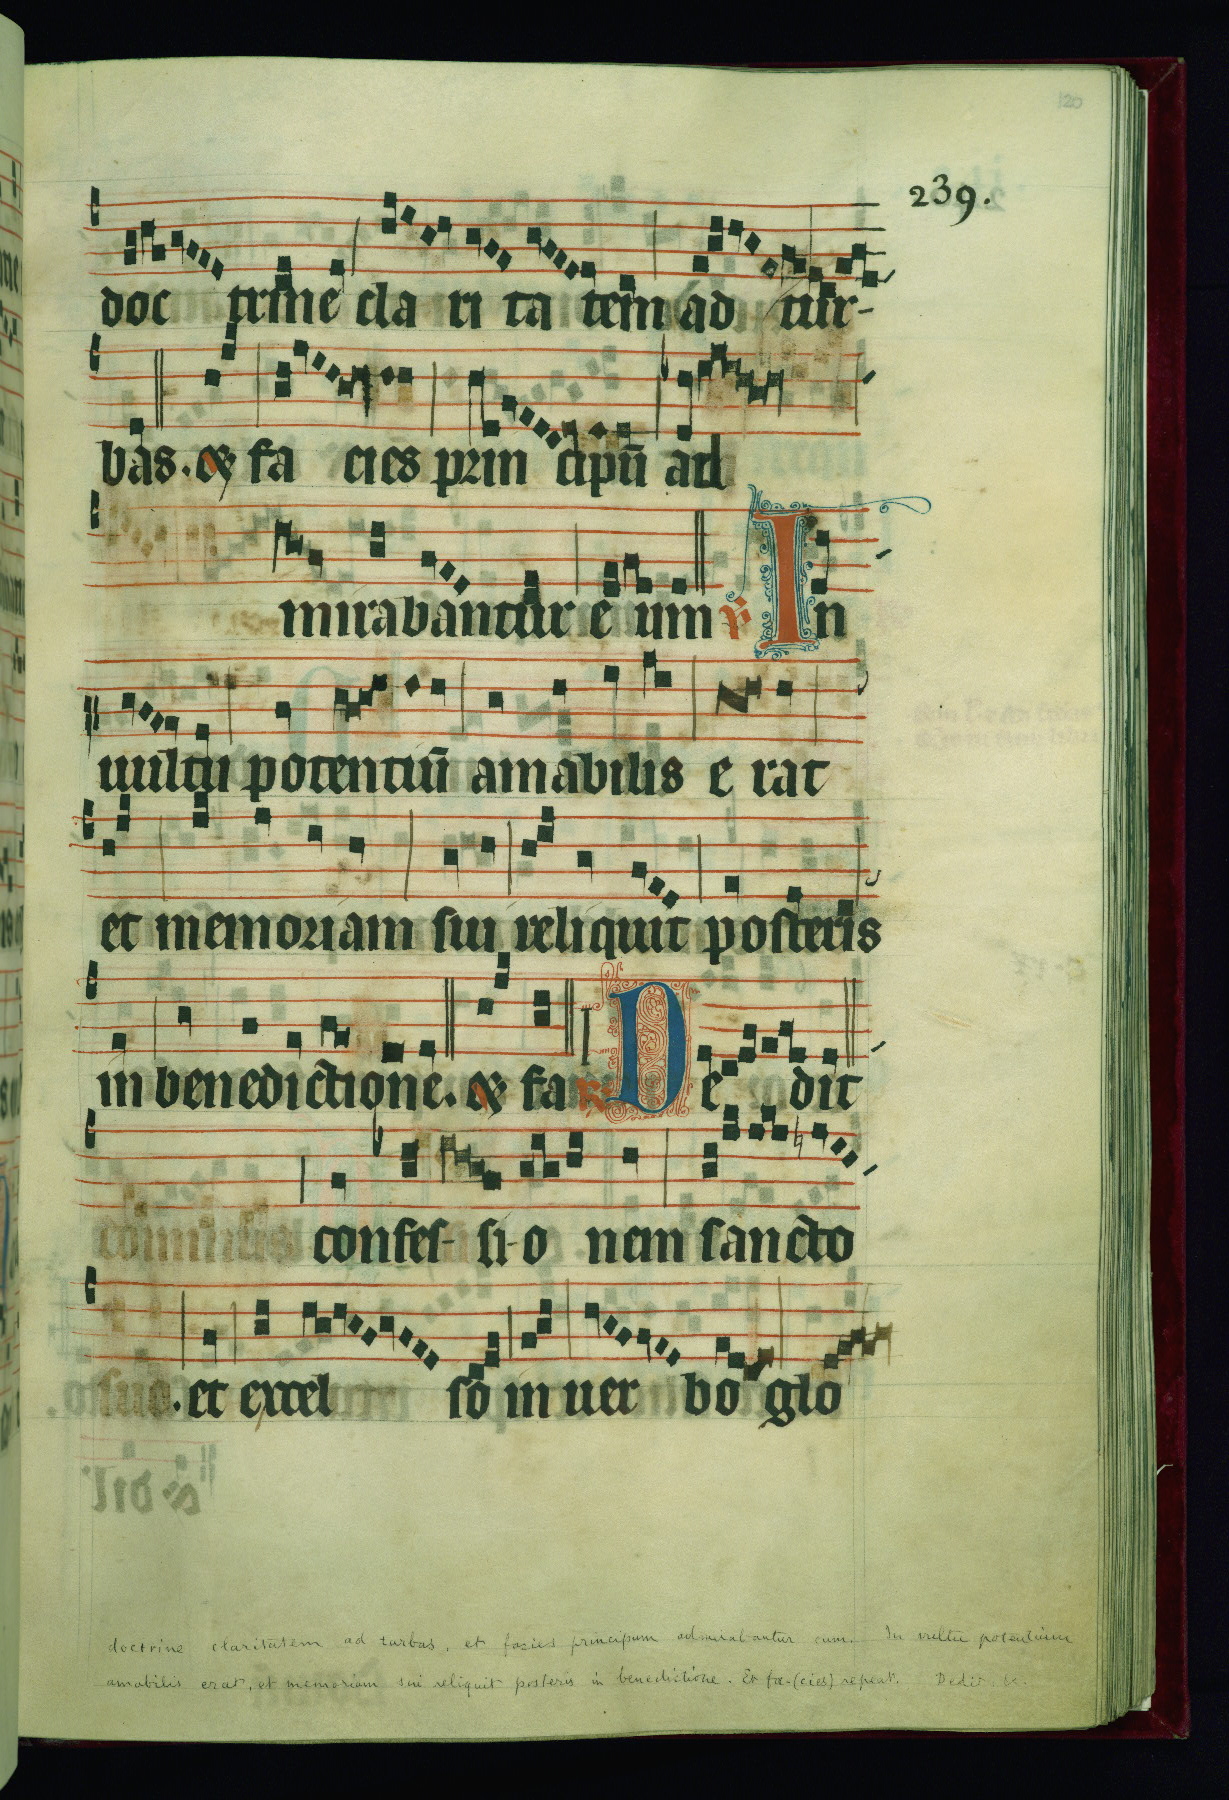 120
239.
doc trine cla ri ta tem ad tur-
bas. & fa cies prin cipū ad
mirabantur e um ℣ In
uultu potentiū amabilis e rat
et memoriam sui reliquit posteris
in benedictione. & fa ℟ De dit
confes- si-o nem sancto
suo. et excel so in uer bo glo
doctrine claritatem ad turbas, et facies principum admirabantur eum. In vultu potentium
amabilis erat, et memoriam sui reliquit posteris in benedictione. Et fa-(cies) repeat. Dedit